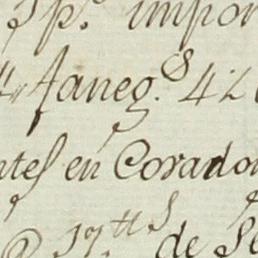 Sp.º impor
4, faneg.s 42
ntes en Corador
17tts de Se